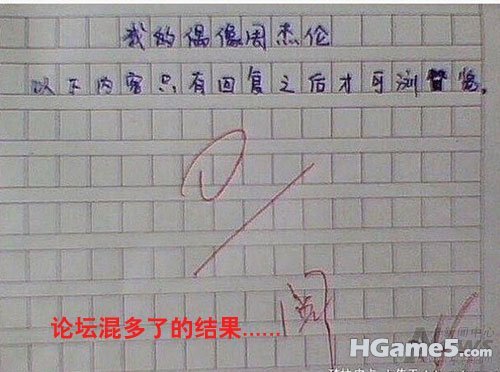 我的偶像周杰伦
以下内容只有回复之后才可浏览。
0
阅
论坛混多了的结果......
HGame5.com